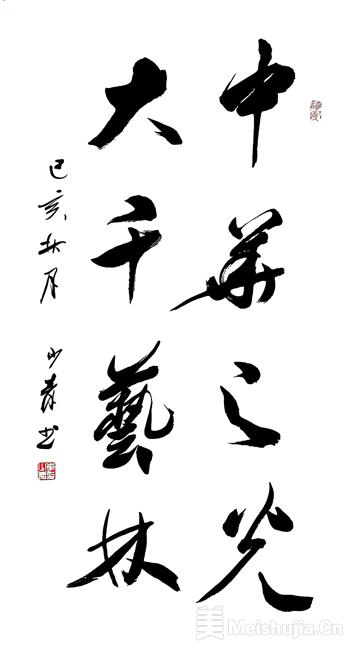 中華之光
大千藝林
己亥秋月 少春书
美 Meishujia.Cn